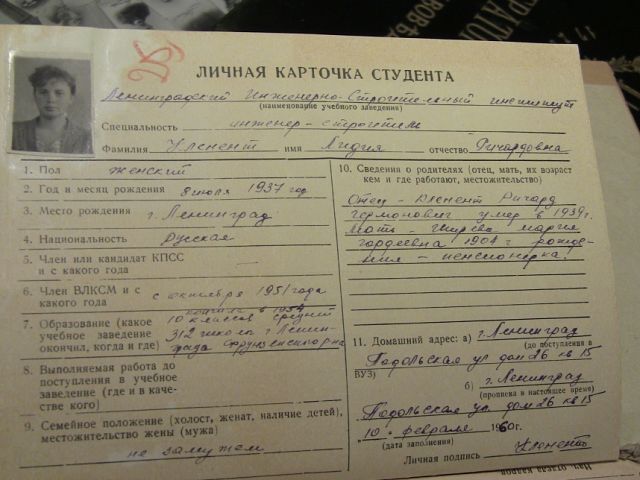 ЛИЧНАЯ КАРТОЧКА СТУДЕНТА
Ленинградский Инженерно-Строительный институт
(наименование учебного заведения)
Специальность инженер-строитель
Фамилия Клемент имя Лидия отчество Ричардовна
1. Пол женский
2. Год и месяц рождения 8 июля 1937 год
3. Место рождения г. Ленинград
4. Национальность Русская
5. Член или кандидат КПСС
и с какого года
6. Член ВЛКСМ и с
какого года с октября 1951 года
7. Образование (какое
учебное заведение
окончил, когда и где)
10 классов средней
312 школы г Ленин-
града Фрунзенского
8. Выполняемая работа до
поступления в учебное
заведение (где и в каче-
стве кого)
9. Семейное положение (холост, женат, наличие детей),
местожительство жены (мужа)
не замужем
10. Сведения о родителях (отец, мать, их возраст
кем и где работают, местожительство)
Отец - Клемент Ричард
германович умер в 1939г.
Мать - мария
гордеевна 1904 г рожде-
ния - пенсионерка.
11. Домашний адрес: а) г. Ленинград
(до поступления в
Подольская ул дом 26 кв 15
ВУЗ)
б) г. Ленинград
(прописка в настоящее время)
Подольская ул дом 26 кв 15
10 февраля 1960г.
(дата заполнения)
Личная подпись Клемент